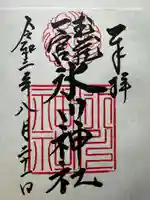 奉拝
武蔵
一宮
氷川神社
令和 年八月 日